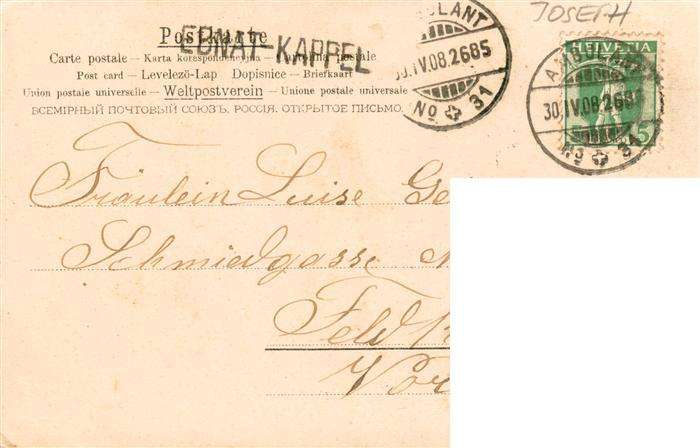 JOSEPH
Postkarte
EBNAT-KAPPEL
Carte postale – Karta korespondencyjna –
Post card – Levelező-Lap Dopisnice – Briefkaart
Union postale universelle – Weltpostverein – Unione postale universale
ВСЕМІРНЫЙ ПОЧТОВЫЙ СОЮЗЪ. РОССІЯ. ОТКРЫТОЕ ПИСЬМО.
LANT
30.IV.08.2685
No 31
HELVETIA
5
AMBULANT
30.IV.08.2685
No 31
Fräulein Luise Ge
Schmiedgasse N
Feldk
Vor